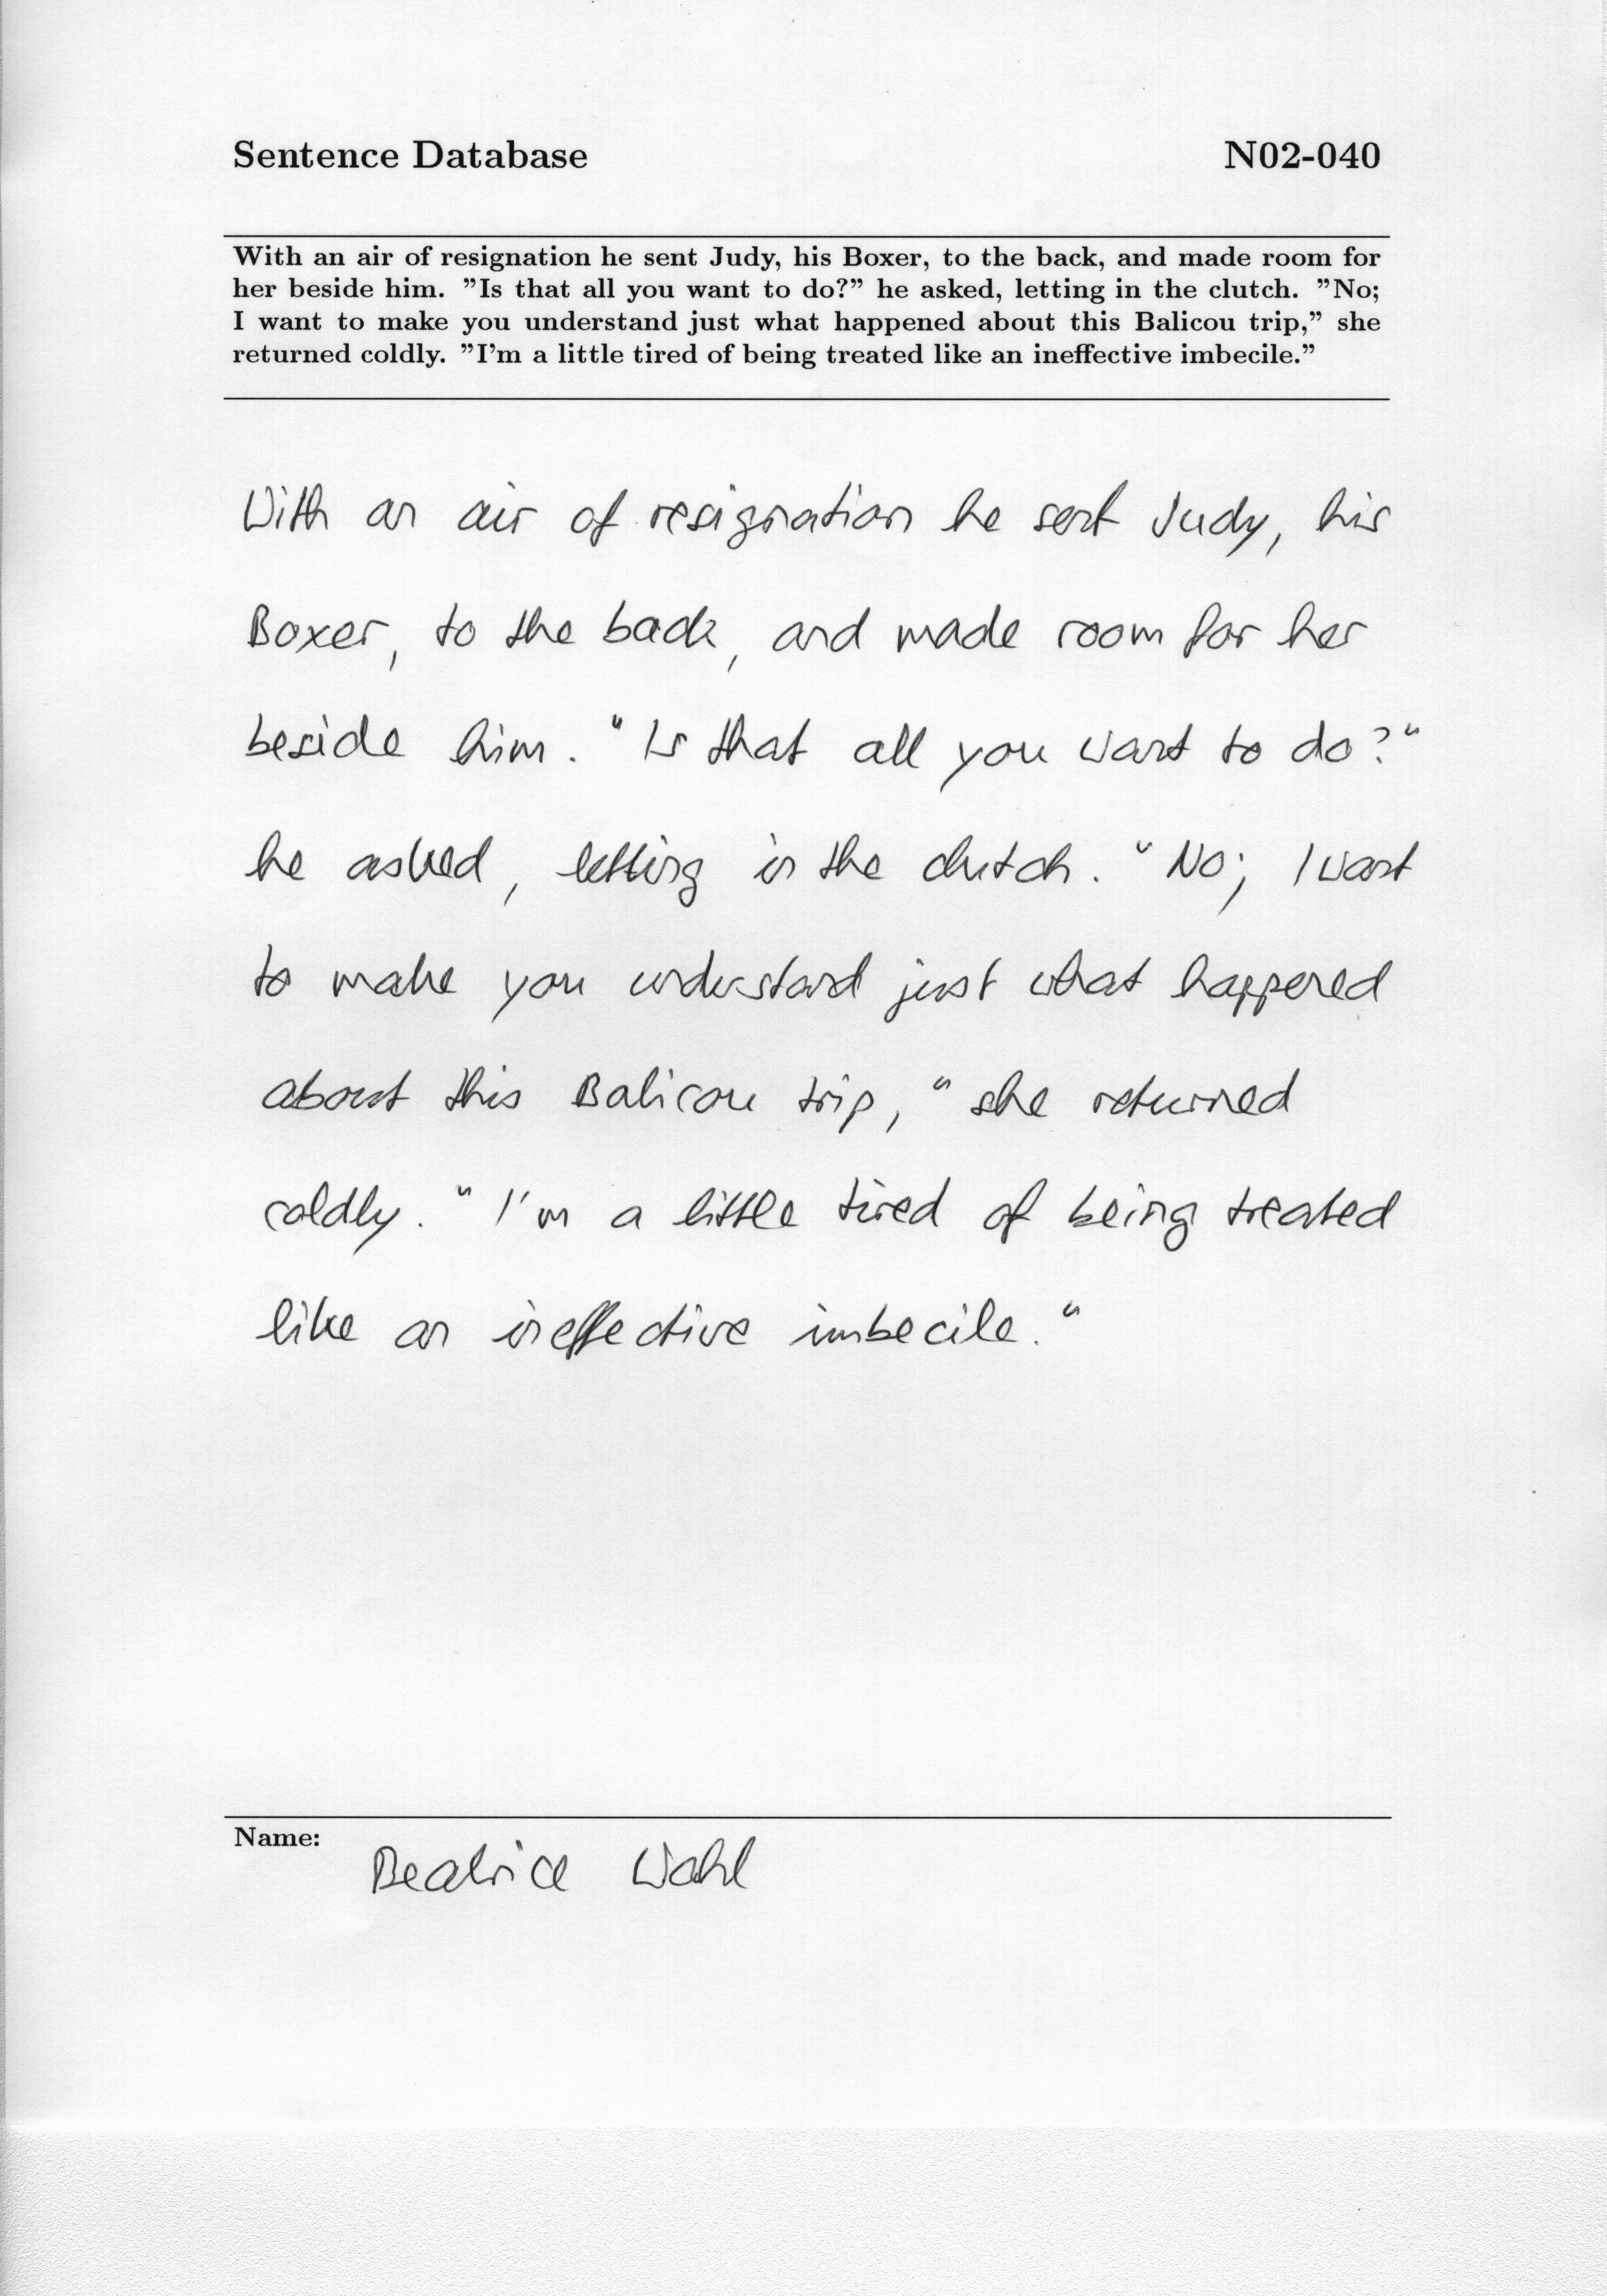 Sentence Database N02-040
With an air of resignation he sent Judy, his Boxer, to the back, and made room for
her beside him. ”Is that all you want to do?” he asked, letting in the clutch. ”No;
I want to make you understand just what happened about this Balicou trip,” she
returned coldly. ”I’m a little tired of being treated like an ineffective imbecile.”
With an air of resignation he sent Judy, his
Boxer, to the back, and made room for her
beside him. "Is that all you want to do?"
he asked, letting in the clutch. "No; I want
to make you understand just what happened
about this Balicou trip," she returned
coldly. "I'm a little tired of being treated
like an ineffective imbecile."
Name: Beatrice Wahl